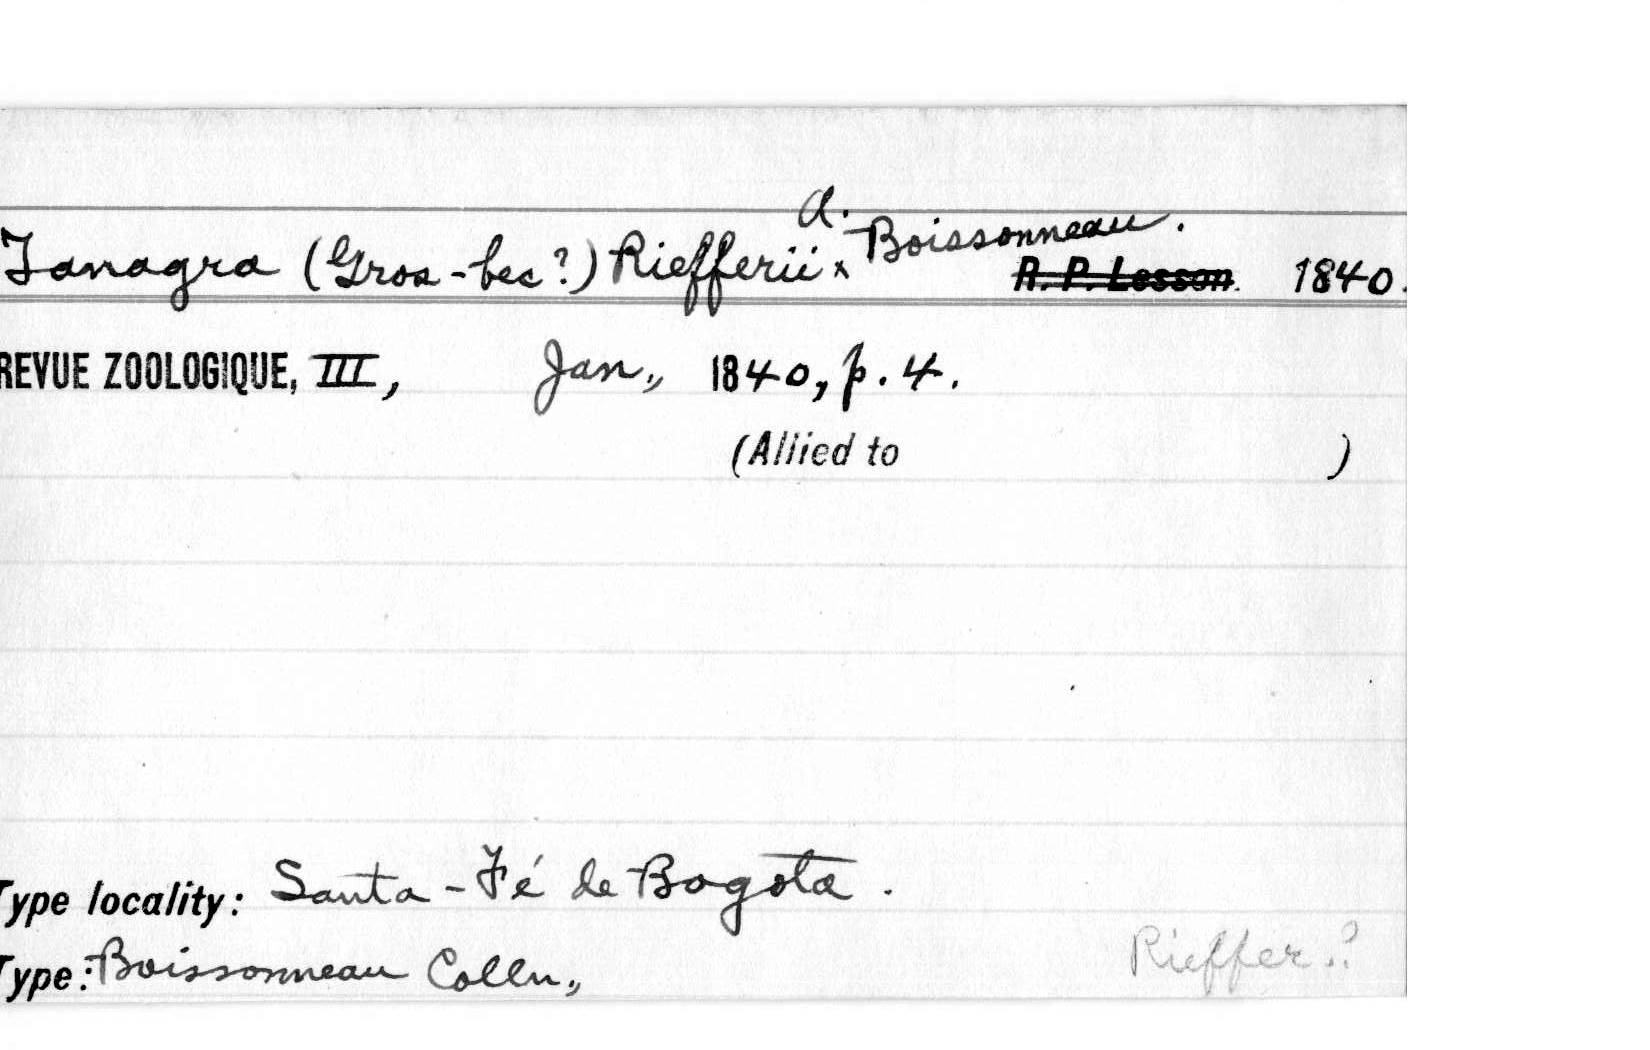 Tanagra (Gros-bec?) Riefferii A. Boissonneau. R. P. Lesson. 1840.
REVUE ZOOLOGIQUE, III, Jan., 1840, p. 4.
(Allied to )
Type locality: Santa-Fé de Bogota.
Type: Boissonneau Colln.,
Rieffer.?